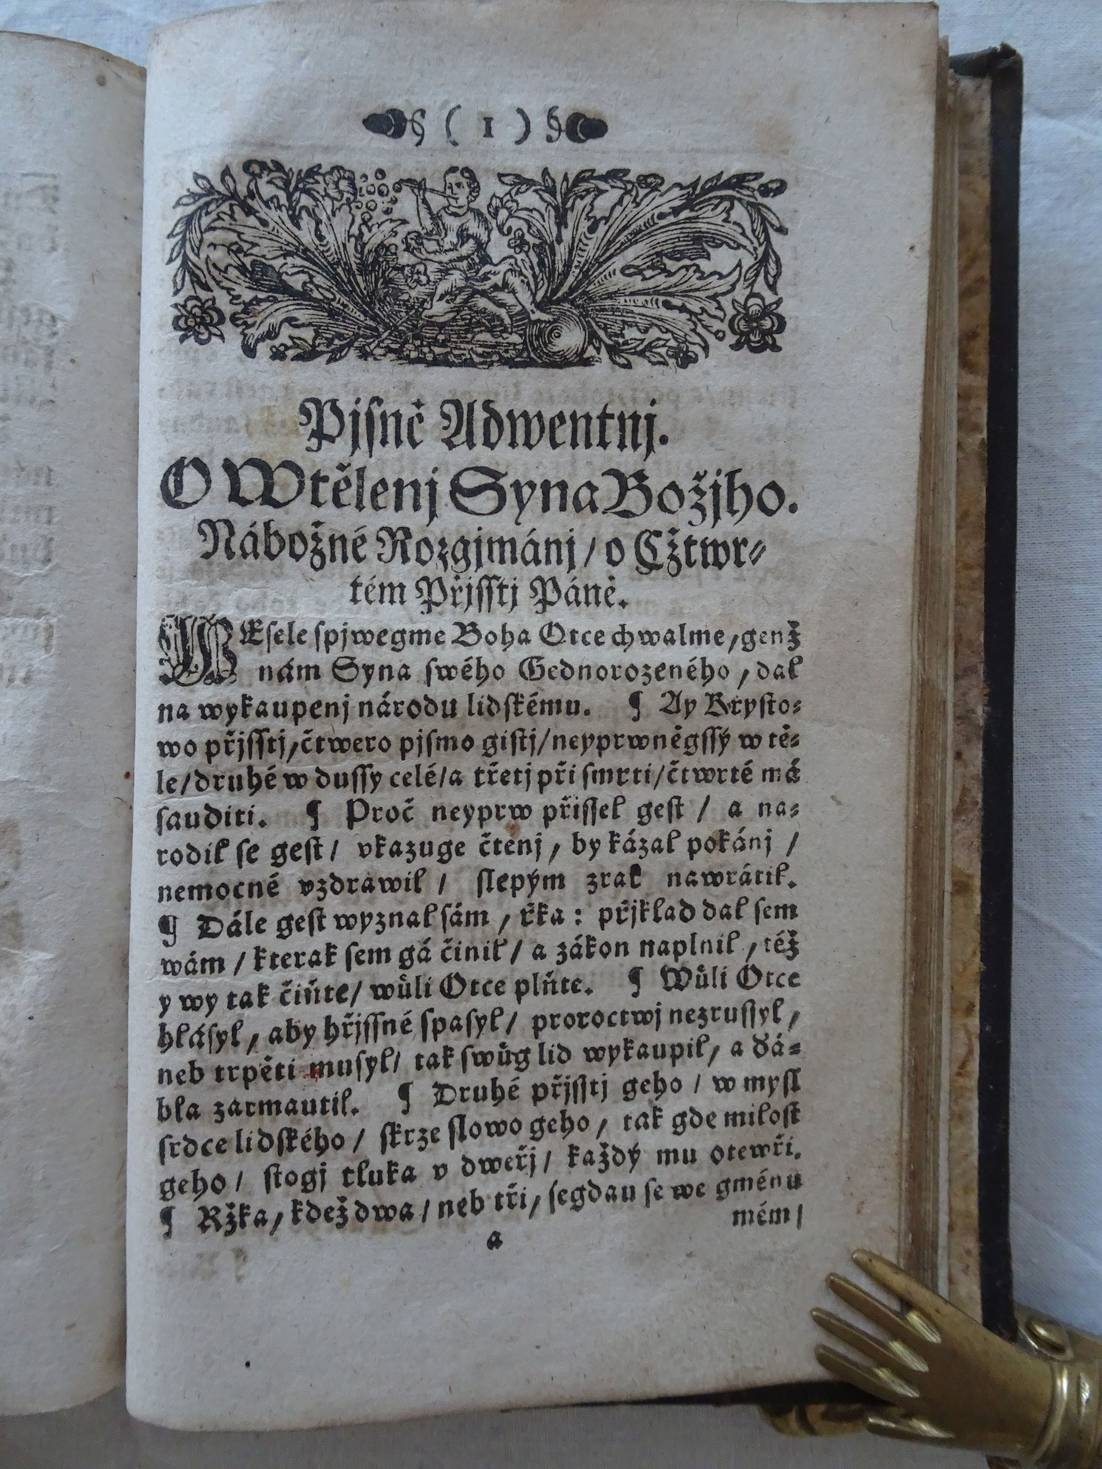 ( 1 )
Pjsně Adwentnj.
O Wtělenj Syna Božjho.
Nábožné Rozgjmánj / o Cžtwr-
tém Přjsstj Páně.
WEsele spjwegme Boha Otce chwalme, genž
nám Syna swého Gednorozeného, dal
na wykaupenj národu lidskému. ¶ Ay Krysto-
wo přjsstj, čtwero pjsmo gistj/ neyprwněgssý w tě-
le/ druhé w dussy celé/ a třetj při smrti/ čtwrté má
sauditi. ¶ Proč neyprw přissel gest / a na-
rodil se gest / vkazuge čtenj, by kázal pokánj /
nemocné vzdrawil / slepým zrak nawrátil.
¶ Dále gest wyznal sám, řka: přjklad dal sem
wám / kterak sem gá činil / a zákon naplnil, též
y wy tak čiňte/ wůli Otce plňte. ¶ Wůli Otce
hlásyl, aby hřjssné spasyl / proroctwj nezrussyl,
neb trpěti musyl/ tak swůg lid wykaupil, a ďá-
bla zarmautil. ¶ Druhé přjsstj geho / w mysl
srdce lidského / skrze slowo geho, tak gde milost
geho / stogj tluka v dweřj / každý mu otewři.
¶ Ržka, kdež dwa / neb tři, segdau se we gménu
mém /
a